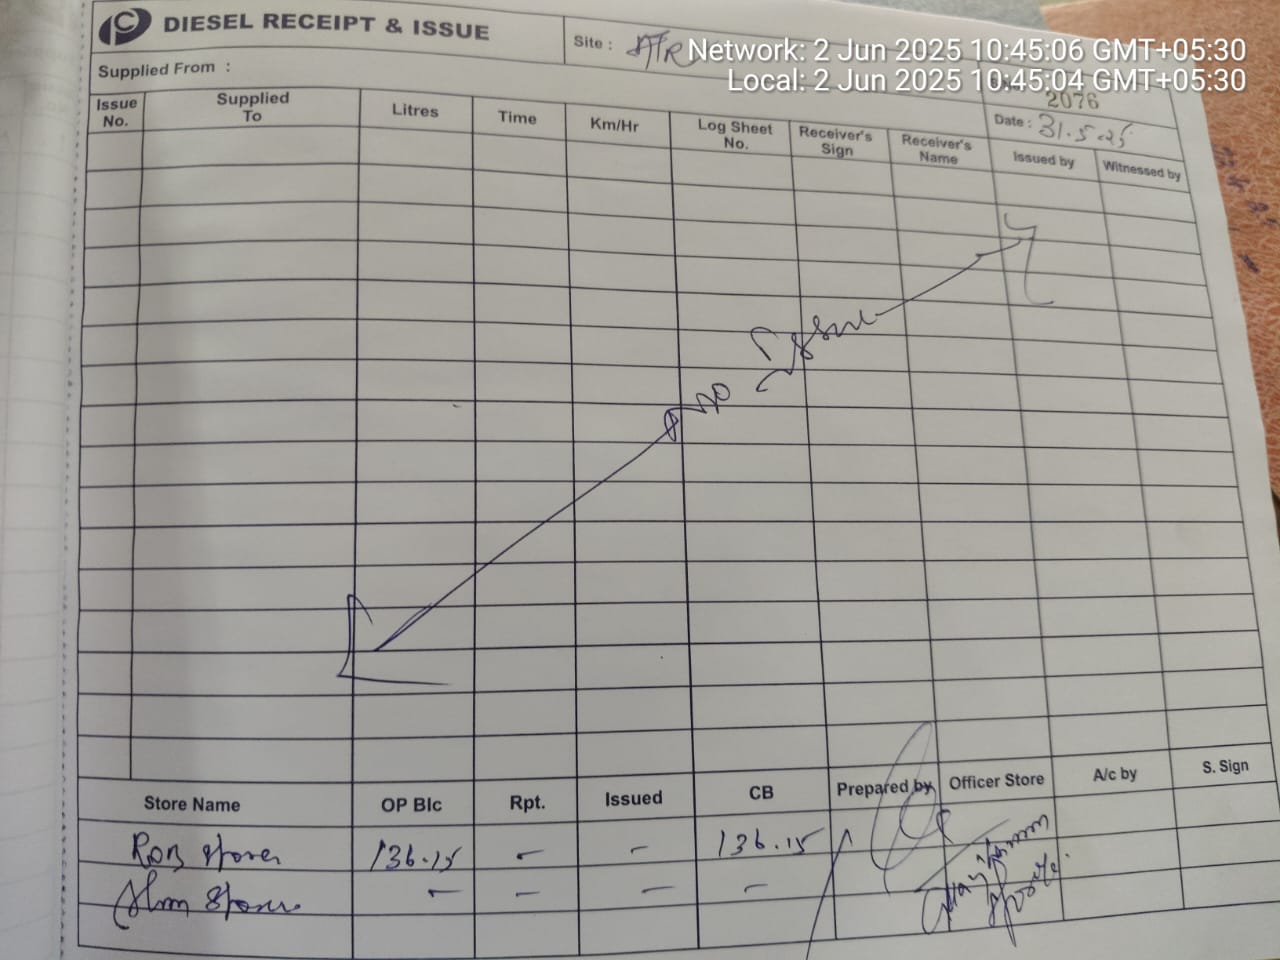 DIESEL RECEIPT & ISSUE
Site : ATR
Network: 2 Jun 2025 10:45:06 GMT+05:30
Local: 2 Jun 2025 10:45:04 GMT+05:30
Supplied From :
2076
Date : 31.5.25
Issue No.
Supplied To
Litres
Time
Km/Hr
Log Sheet No.
Receiver's Sign
Receiver's Name
Issued by
Witnessed by
No Issue
Store Name OP Blc Rpt. Issued CB Prepared by Officer Store A/c by S. Sign
ROB Store 136.15 - - 136.15
Store - - - -